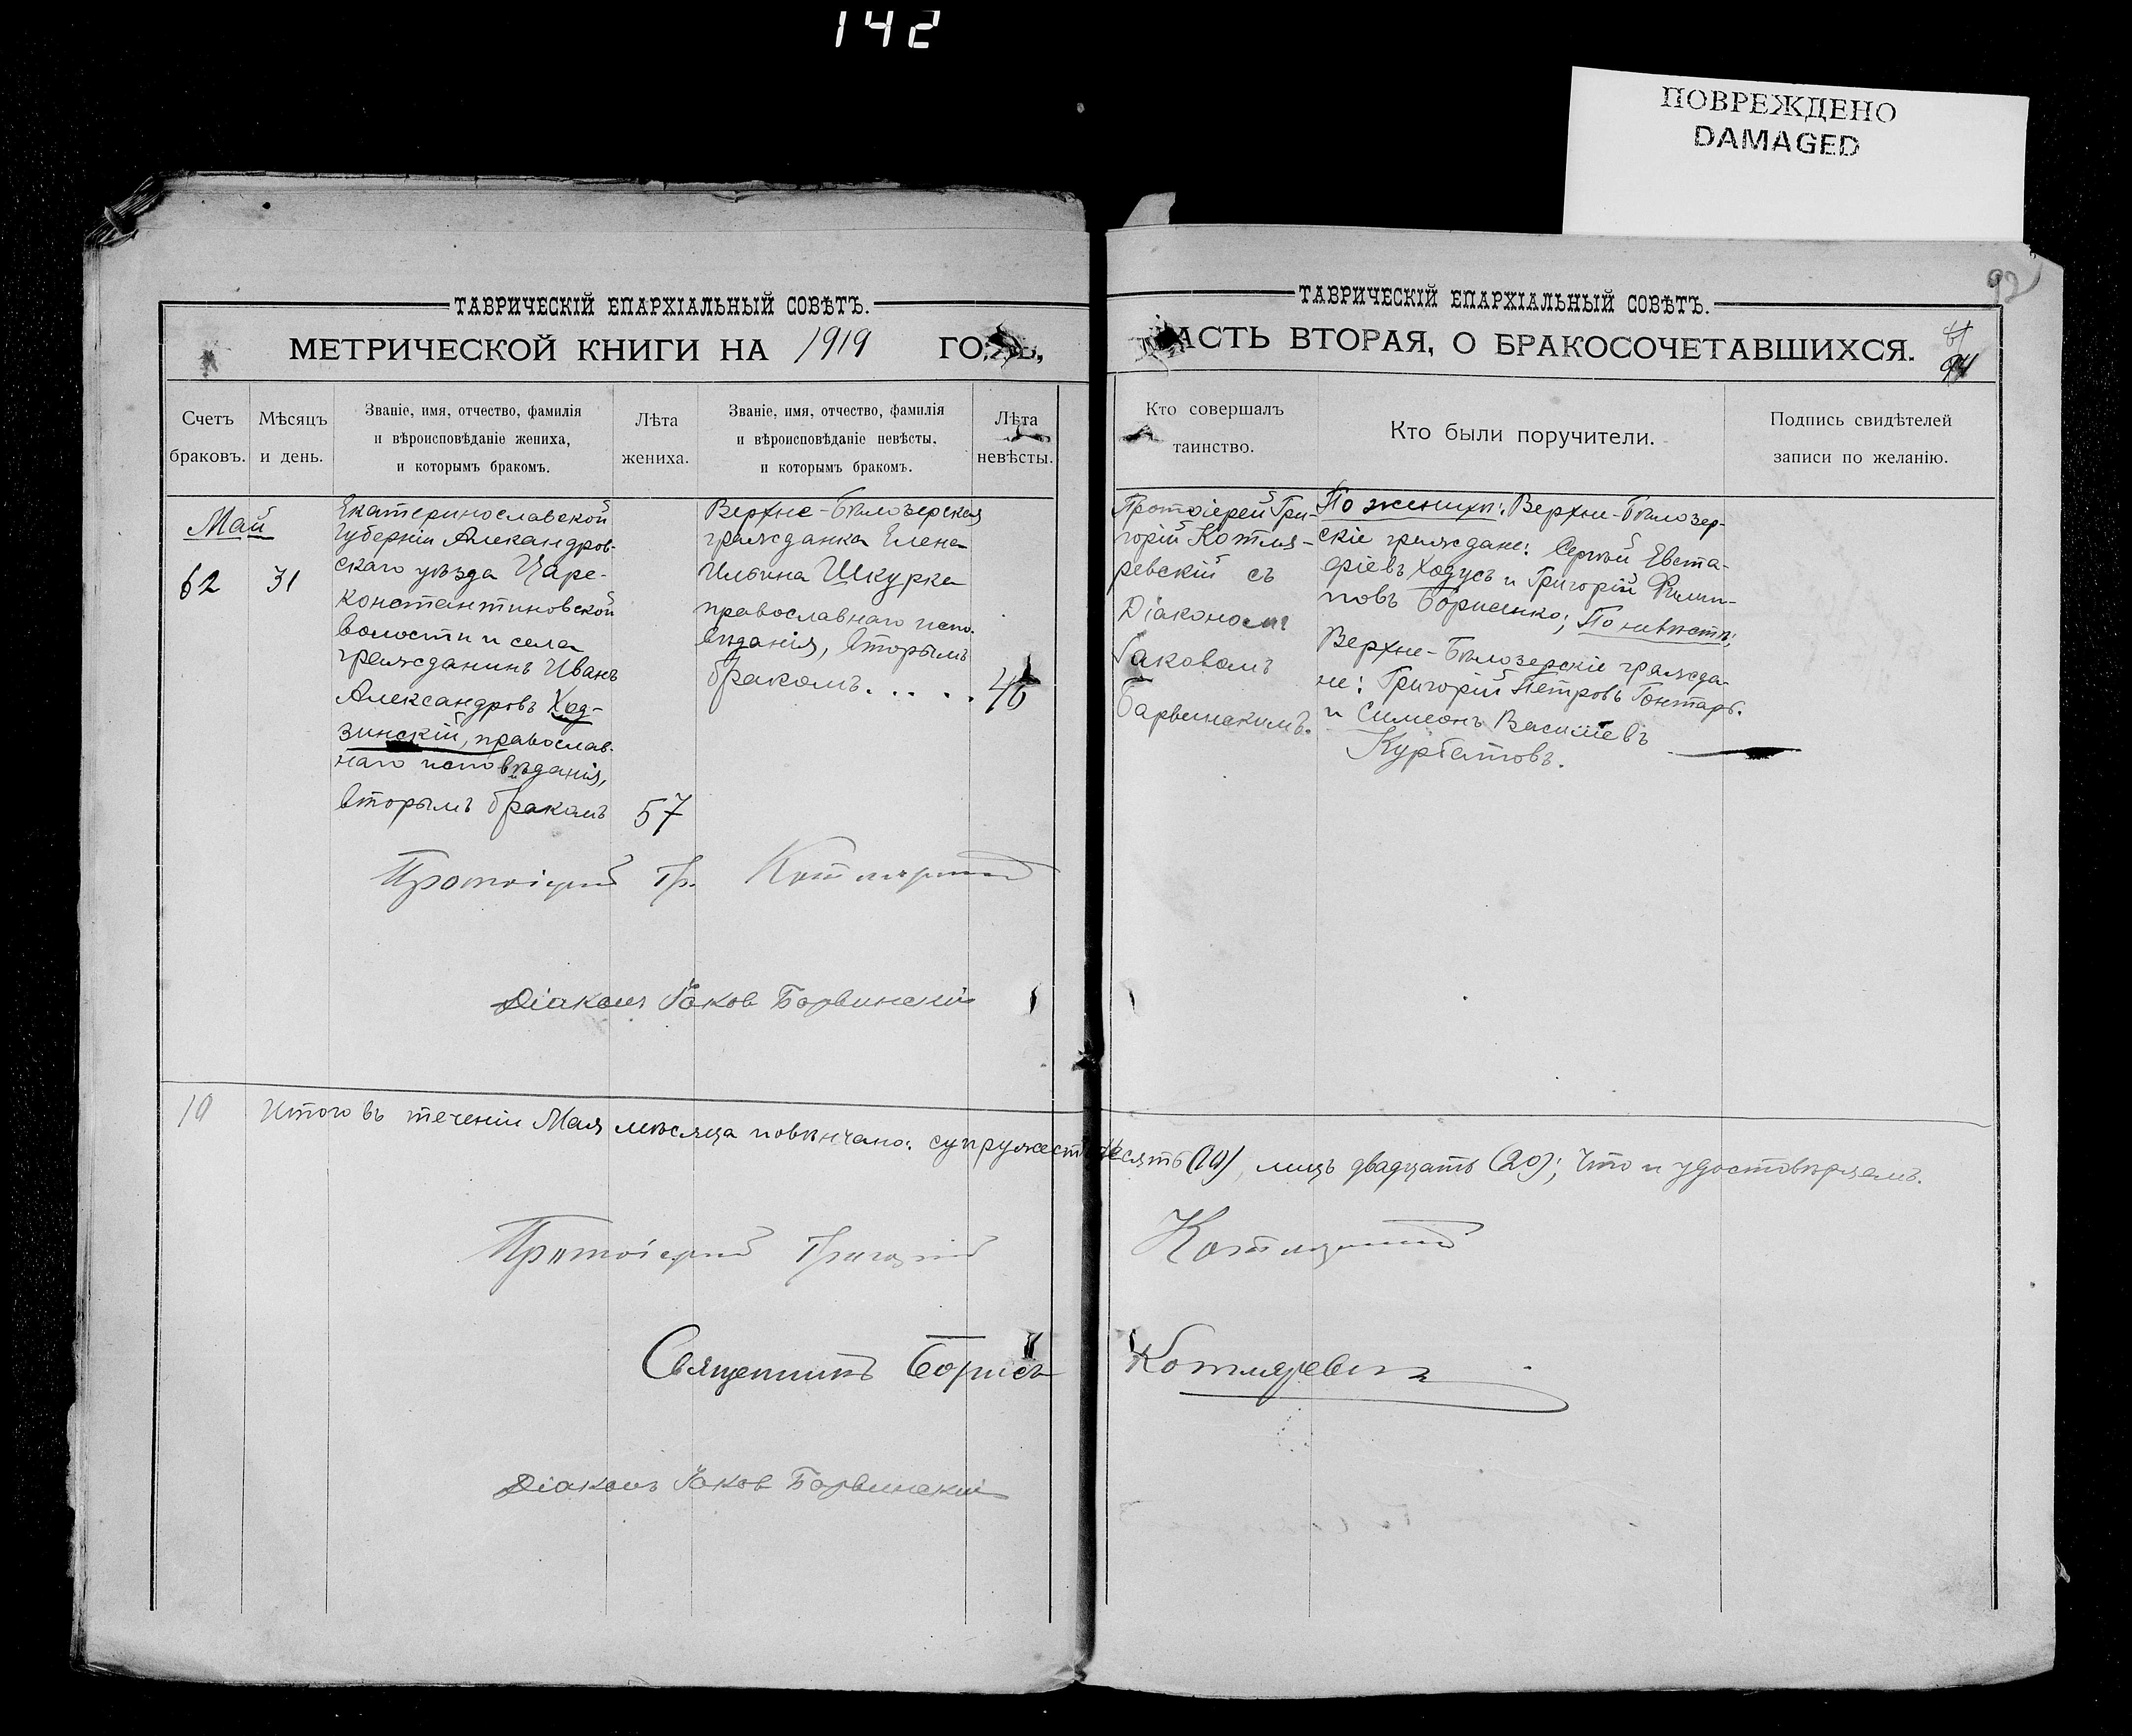 142
ПОВРЕЖДЕНО
DAMAGED
ТАВРИЧЕСКІЙ ЕПАРХІАЛЬНЫЙ СОВѢТЪ.
МЕТРИЧЕСКОЙ КНИГИ НА 1919 ГО
Счетъ браковъ.
Мѣсяцъ и день.
Званіе, имя, отчество, фамилія
и вѣроисповѣданіе жениха,
и которымъ бракомъ.
Лѣта жениха.
Званіе, имя, отчество, фамилія
и вѣроисповѣданіе невѣсты,
и которымъ бракомъ.
Лѣта невѣсты.
Май
62 31
Екатеринославской
Губерніи Александров-
скаго уѣзда Царе-
константиновской
волости и села
гражданинъ Иванъ
Александровъ Ход-
зинскій, православ-
наго исповѣданія,
вторымъ бракомъ 57
Верхне-Бѣлозерская
гражданка Елена
Ильина Шкурка
православнаго испо-
вѣданія, вторымъ
бракомъ. . . . . 46
Протоіерей Гр.
Діаконъ Іаков Барвинскій
10 Итого въ теченіи Мая мѣсяца повѣнчано: супружествъ десять (10), лицъ двадцать (20); что и удостовѣряемъ.
Протоіерей Григорій
Священникъ Борисъ Котляревскій
Діаконъ Іаков Барвинскій
92
ТАВРИЧЕСКІЙ ЕПАРХІАЛЬНЫЙ СОВѢТЪ.
АСТЬ ВТОРАЯ, О БРАКОСОЧЕТАВШИХСЯ.
Кто совершалъ
таинство.
Кто были поручители.
Подпись свидѣтелей
записи по желанію.
Протоіерей Гри-
горій Котля-
ревскій съ
Діакономъ
Іаковомъ
Барвинскимъ.
По женихѣ: Верхне-Бѣлозер-
скіе граждане: Сергѣй Евста-
фіевъ Ходусъ и Григорій Филип-
повъ Борисенко; По невѣстѣ:
Верхне-Бѣлозерскіе гражда-
не: Григорій Петровъ Гонтарь.
и Симеонъ Василіевъ
Курбатовъ.